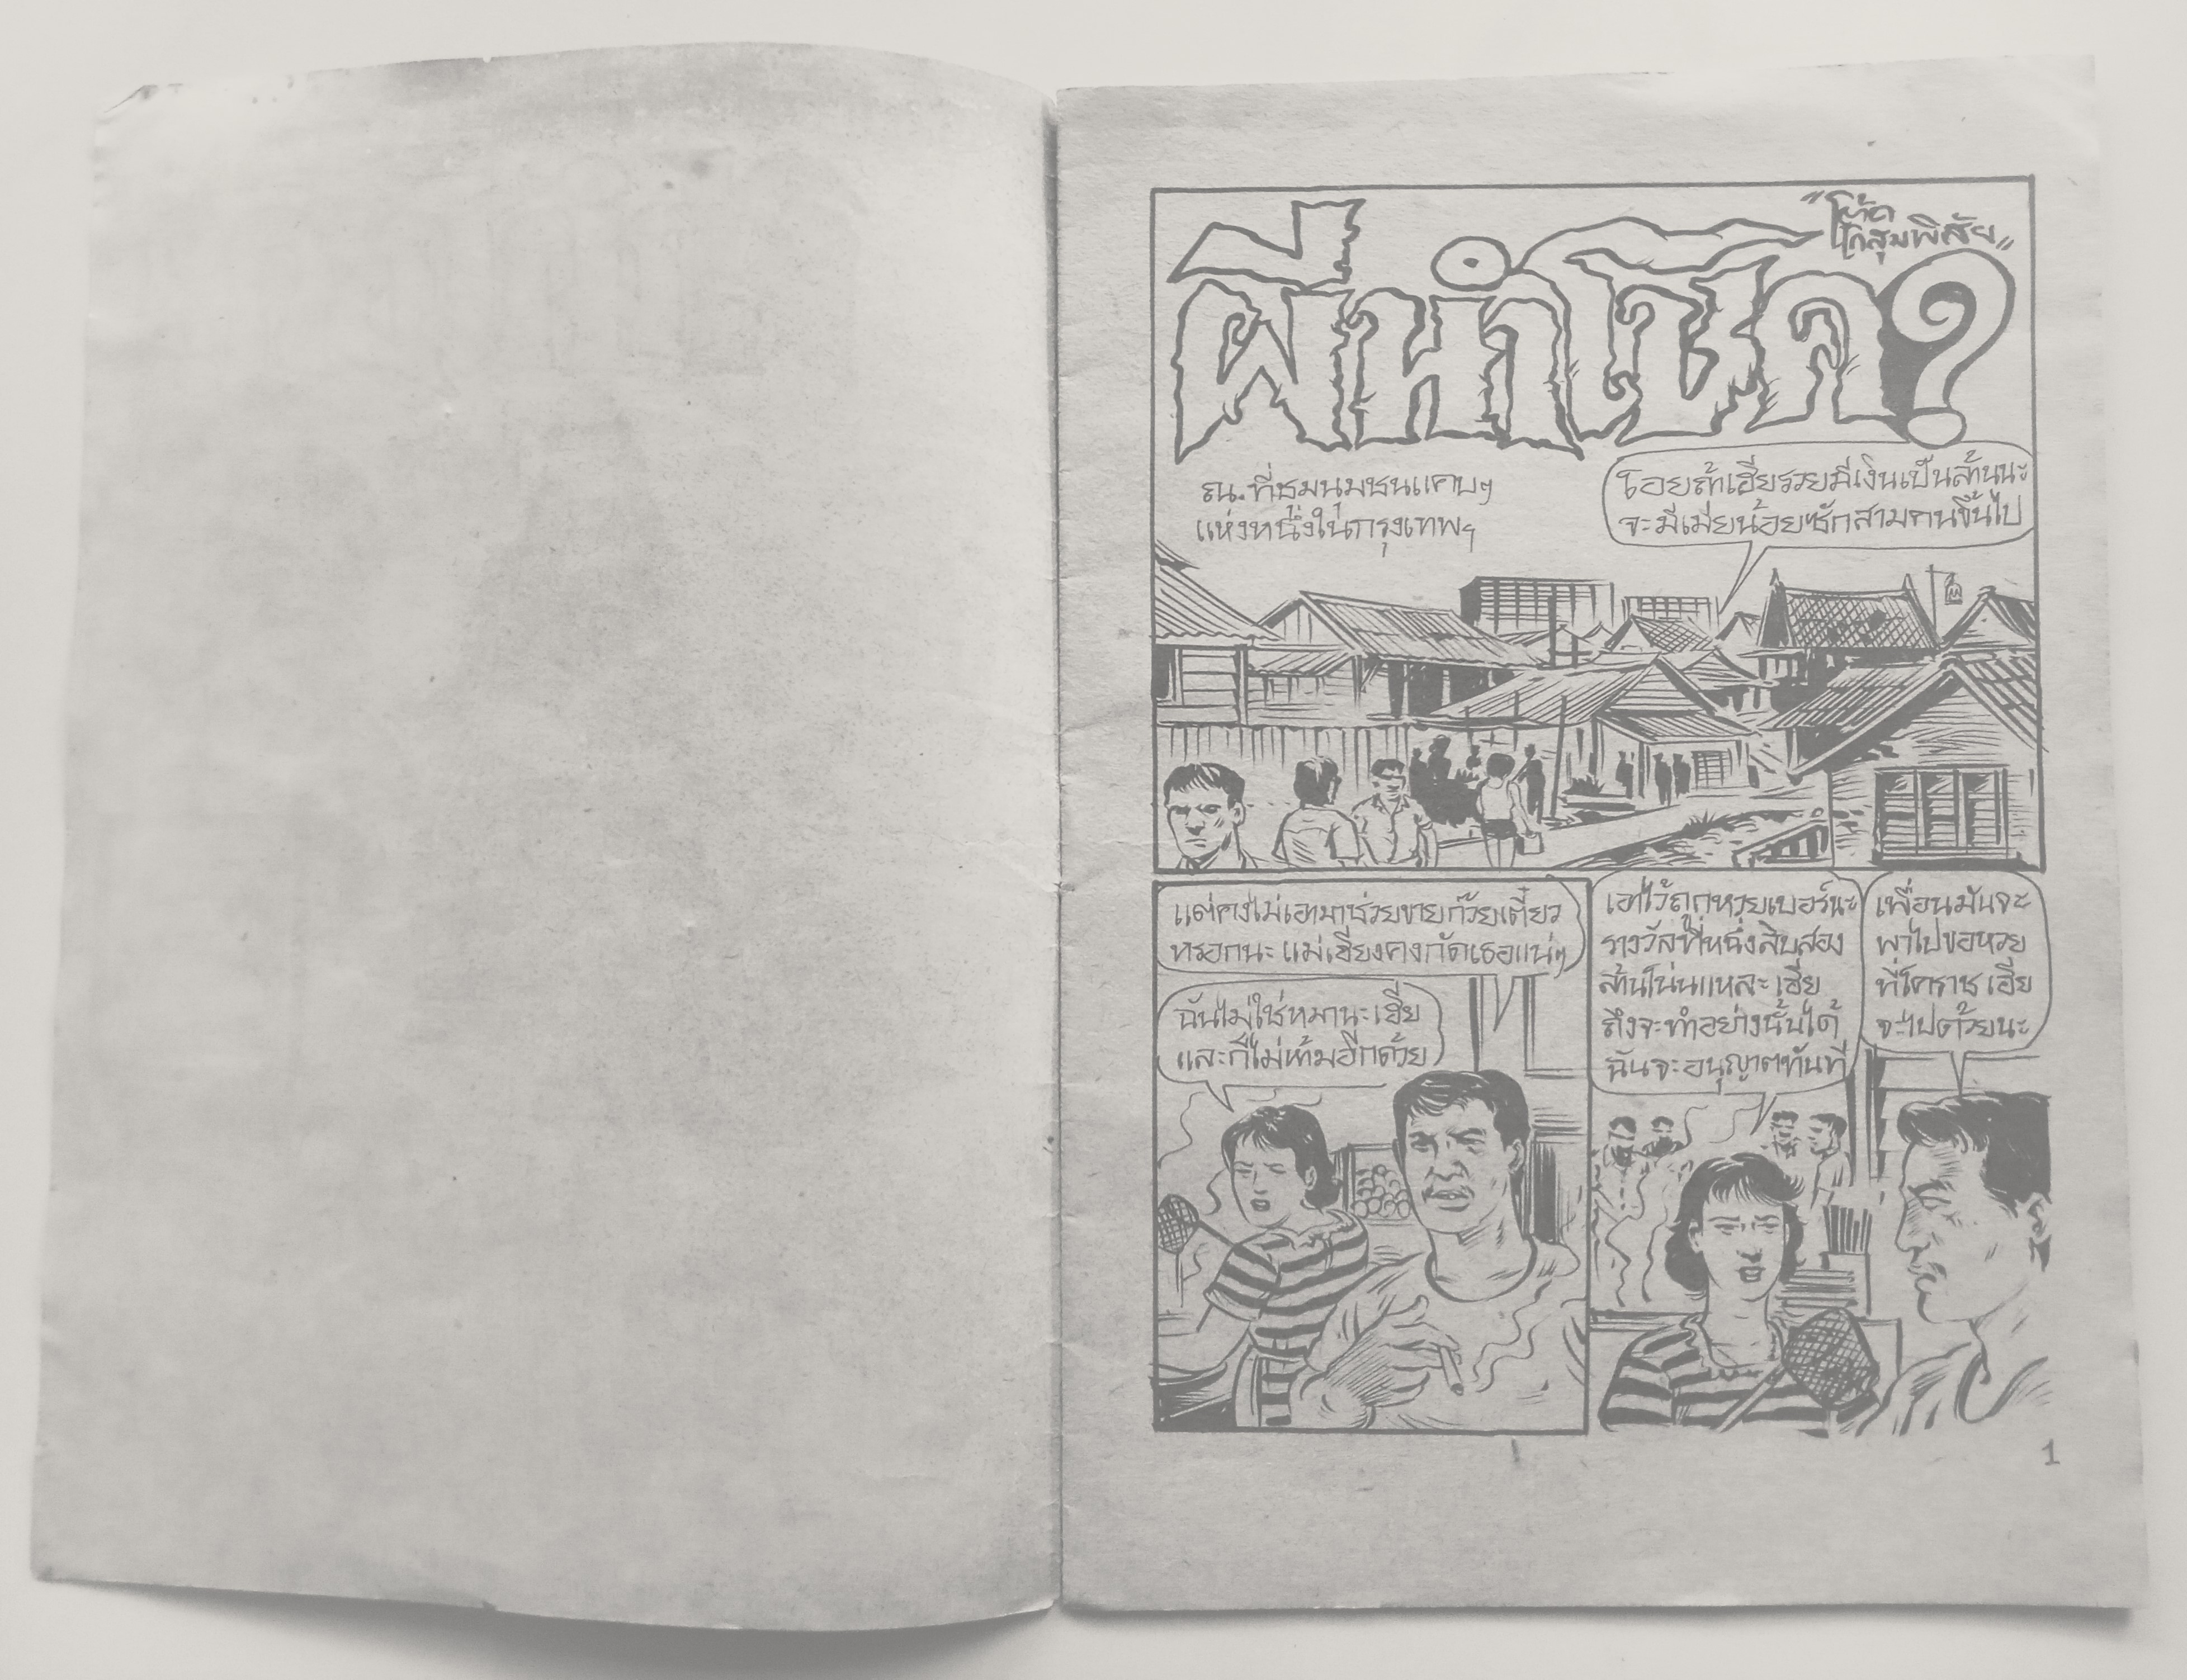 ผีนำโชค?
"โต้ด
โกสุมพิสัย"
ณ.ที่ชุมนุมชนแคบๆ
แห่งหนึ่งในกรุงเทพฯ
โอยถ้าเฮียรวยมีเงินเป็นล้านนะ
จะมีเมียน้อยซักสามคนขึ้นไป
แต่คงไม่เอามาช่วยขายก๊วยเตี๋ยว
หรอกนะ แม่เฮียงคงกัดเธอแน่ๆ
ฉันไม่ใช่หมานะเฮีย
และก็ไม่ห้ามอีกด้วย
เอาไว้ถูกหวยเบอร์นะ
รางวัลที่หนึ่งสิบสอง
ล้านโน่นแหละเฮีย
ถึงจะทำอย่างนั้นได้
ฉันจะอนุญาตทันที
เพื่อนมันจะ
พาไปขอหวย
ที่โคราช เฮีย
จะไปด้วยนะ
1